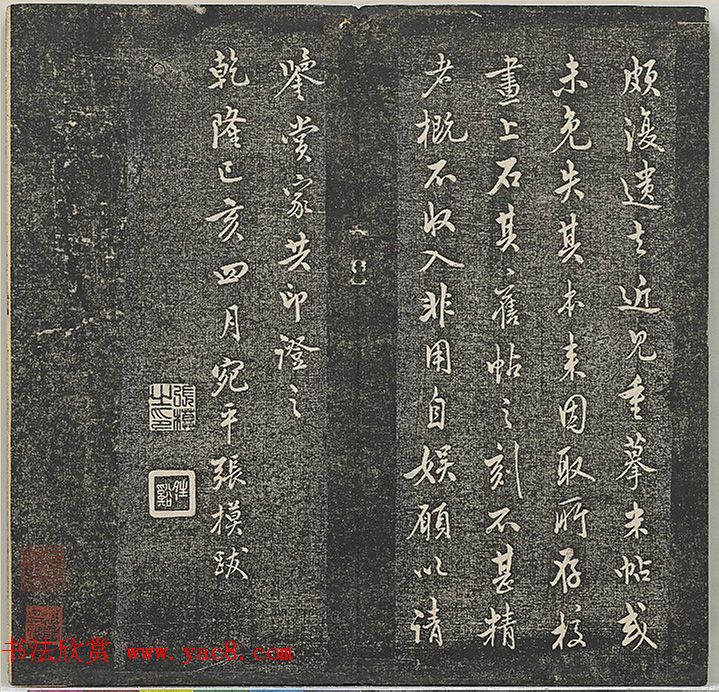 頗漫遺去近見重摹米帖或
未免失其本來因取所存挍
畫上石其舊帖之刻不甚精
者概不收入非用自娛願以請
鑒賞家共印證之
乾隆己亥四月宛平張模跋
張模之印
书法欣赏 www.yac8.com